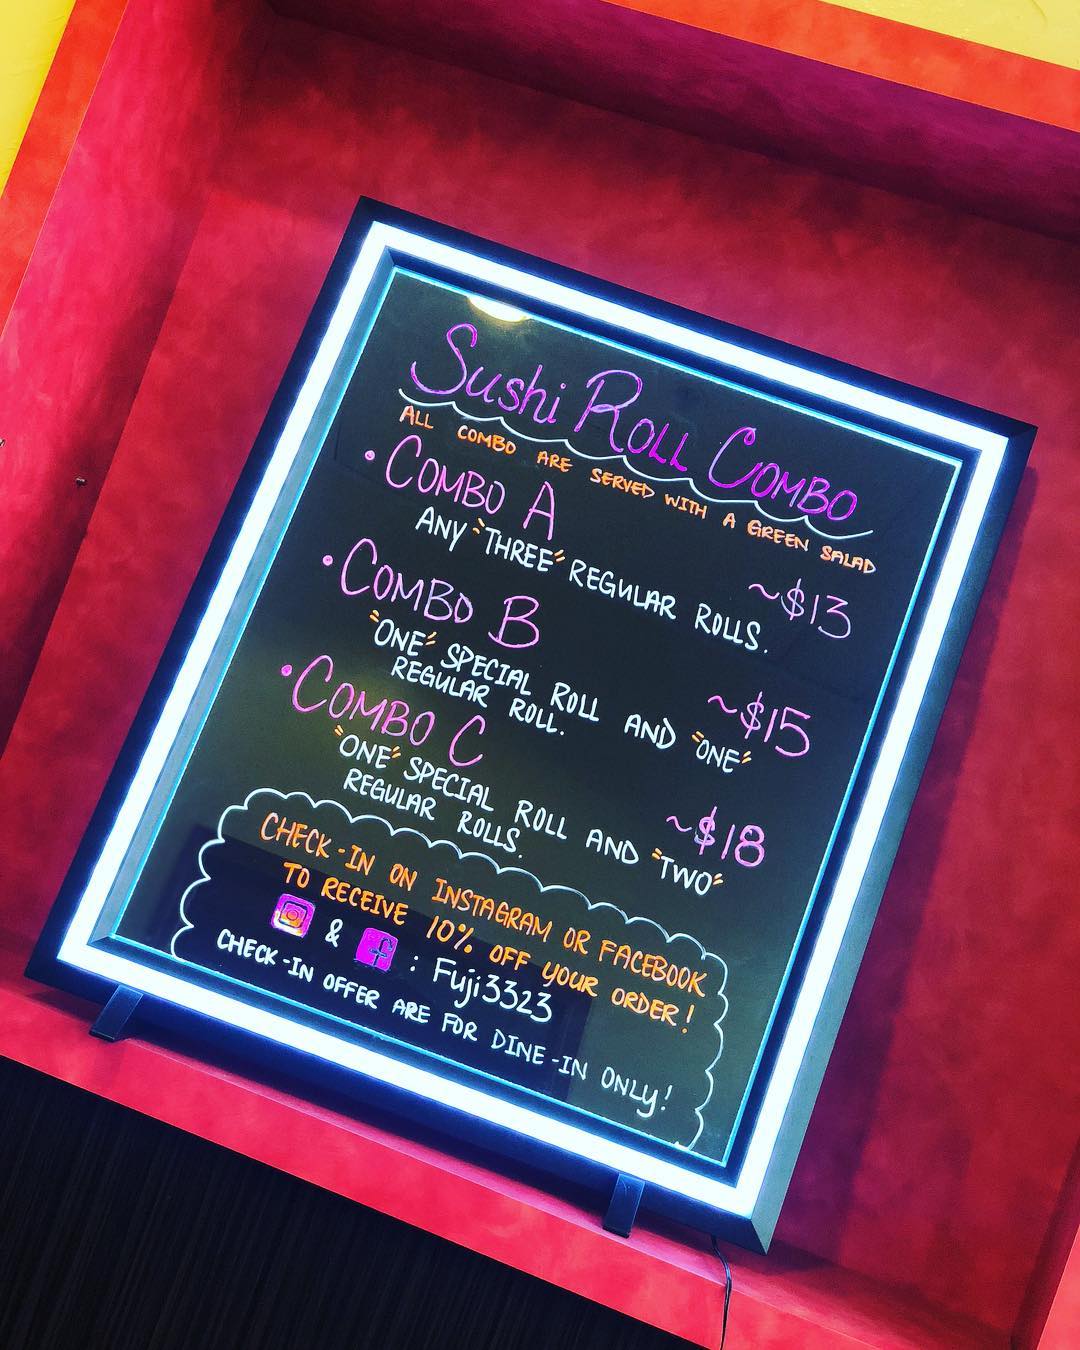 Sushi Roll Combo
ALL COMBO ARE SERVED WITH A GREEN SALAD
• COMBO A ~$13
ANY "THREE" REGULAR ROLLS.
• COMBO B ~$15
"ONE" SPECIAL ROLL AND "ONE"
REGULAR ROLL.
• COMBO C ~$18
"ONE" SPECIAL ROLL AND "TWO"
REGULAR ROLLS.
CHECK-IN ON INSTAGRAM OR FACEBOOK
TO RECEIVE 10% OFF YOUR ORDER!
& f : Fuji3323
CHECK-IN OFFER ARE FOR DINE-IN ONLY!